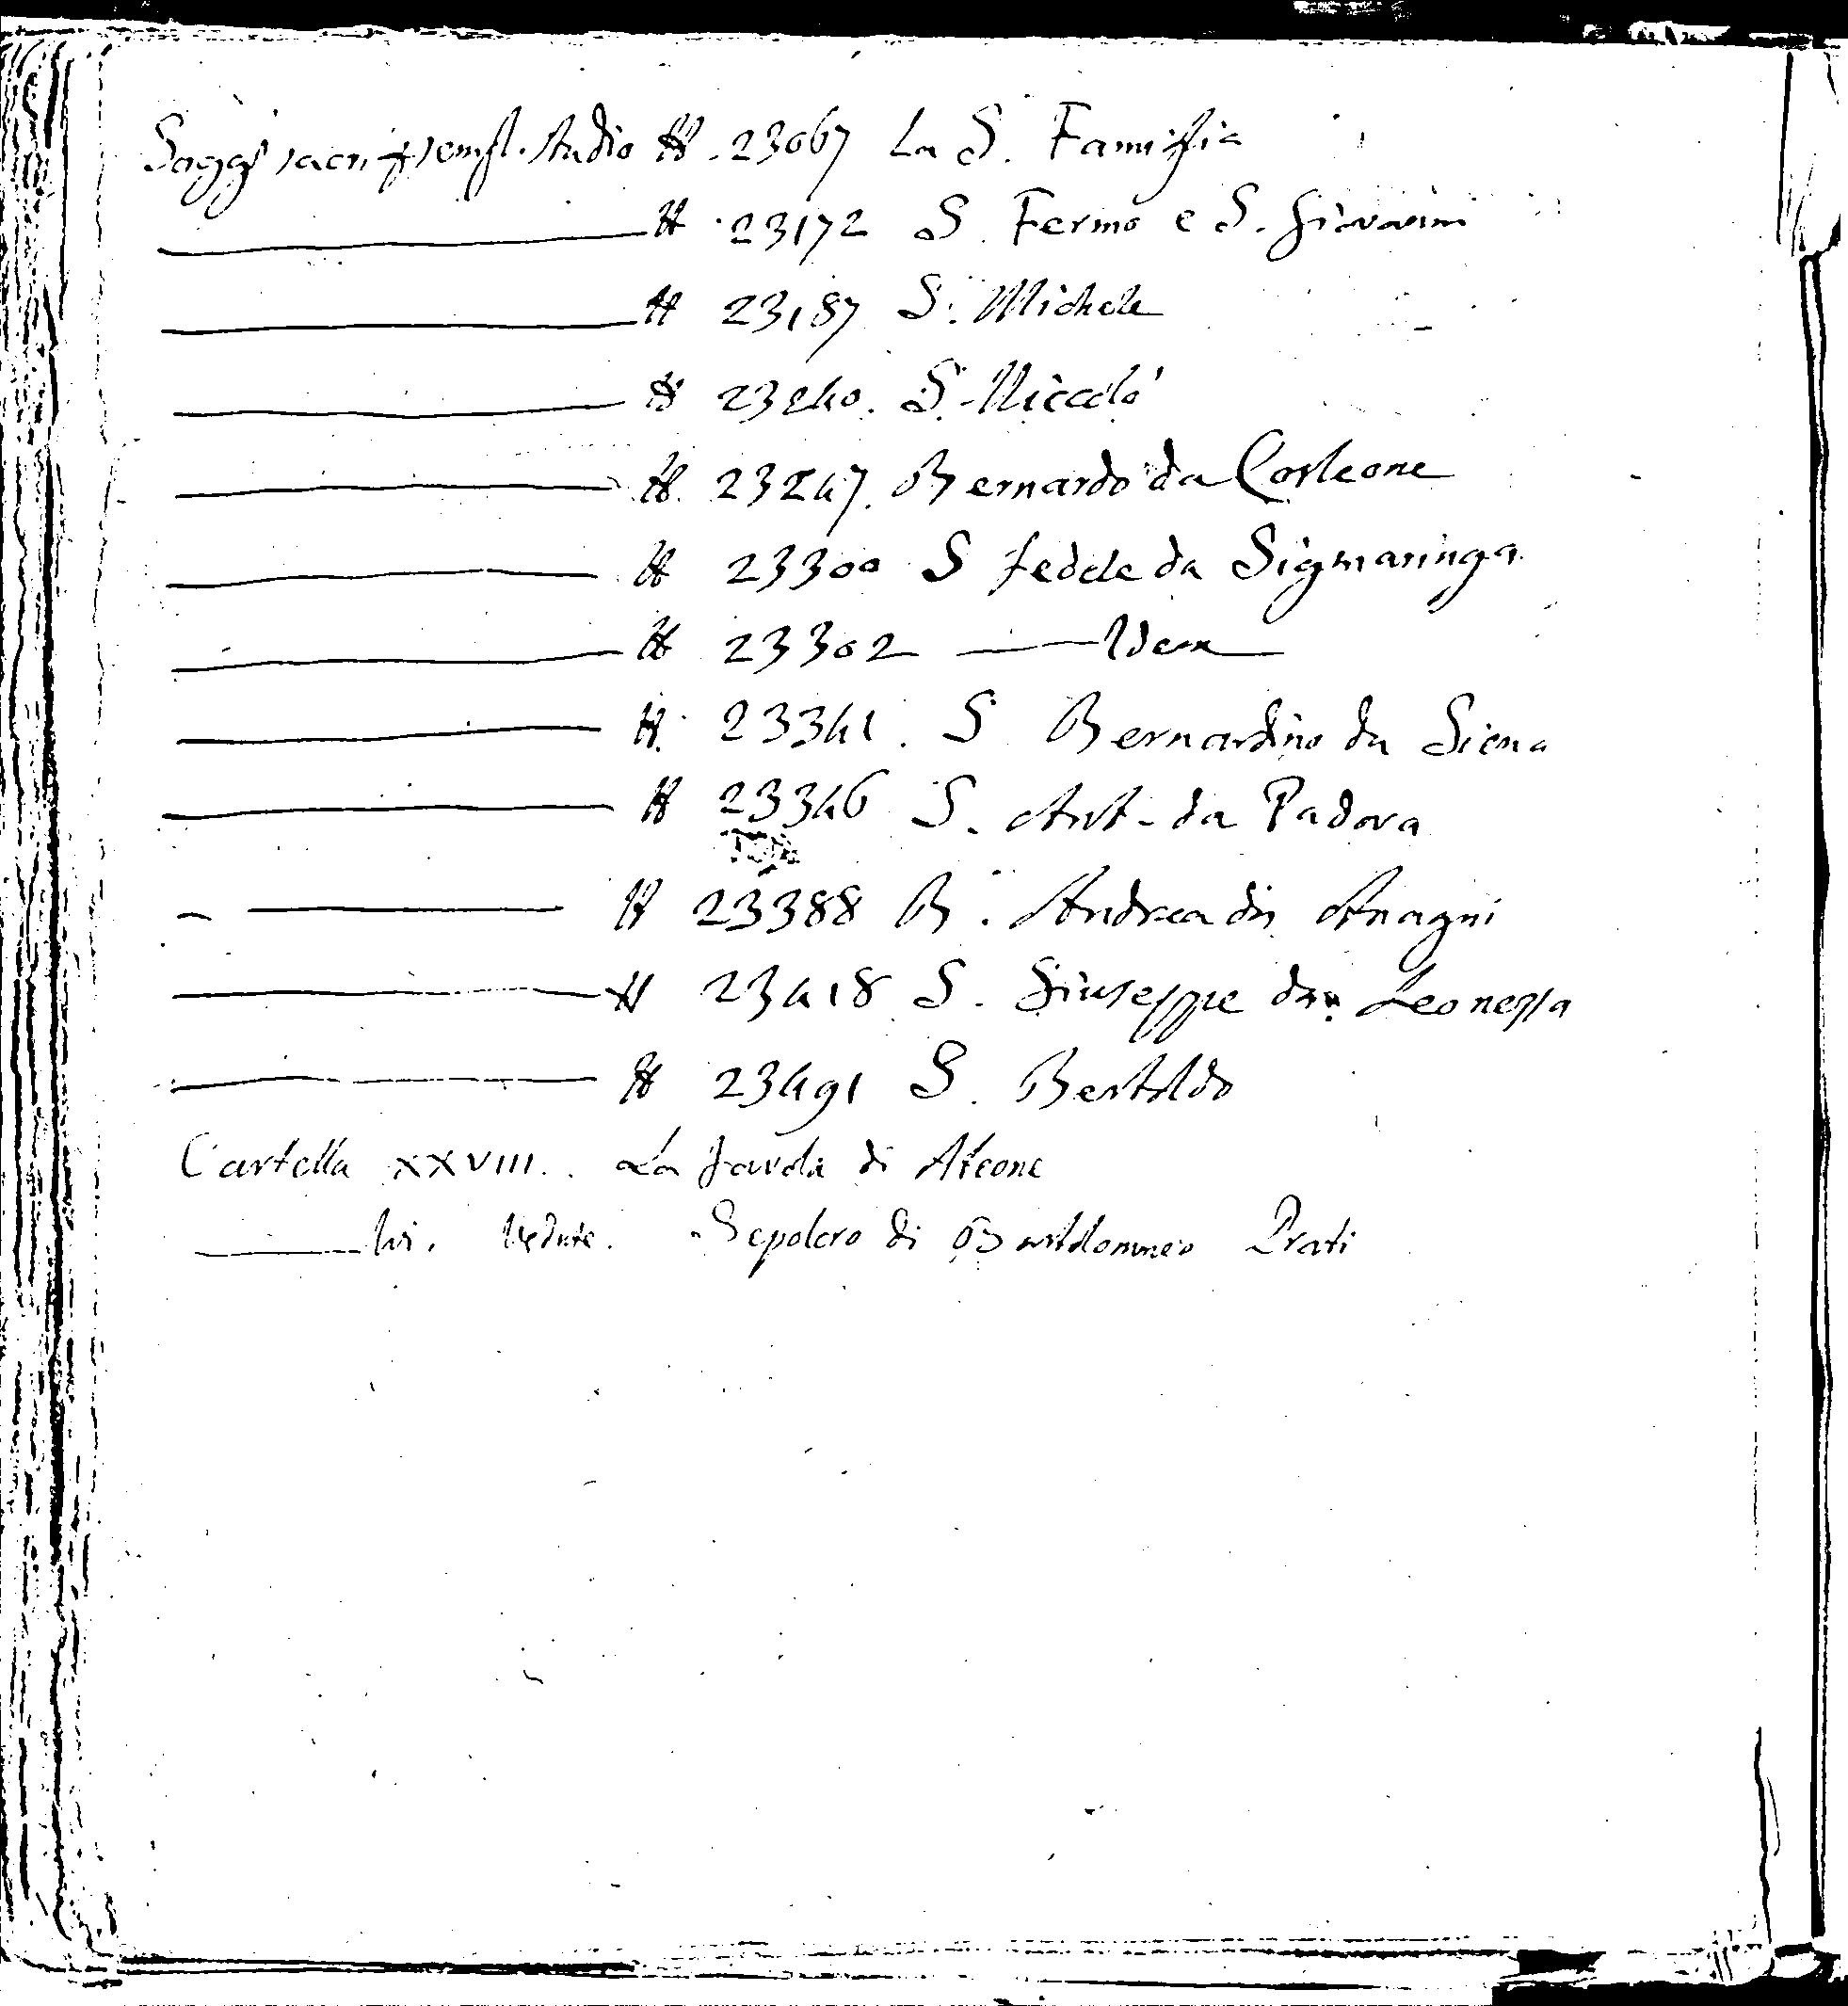 Sogg. sacri sempl. studio N. 23067 La S. Famiglia
N. 23172 S. Fermo e S. Giovanni
N 23187 S. Michele
N 23240. S. Niccolò
N. 23247. Bernardo da Corleone
N 23300 S fedele da Sigmaringa
N 23302 — Idem
N. 23341. S Bernardino da Siena
N 23346 S. Ant. da Padova
N 23388 B. Andrea di Anagni
N 23418 S. Giuseppe da Leonessa
N 23491 S. Bertoldo
Cartella XXVIII.. La favola di Ateone
Vedute. Sepolcro di Bartolommeo Prati